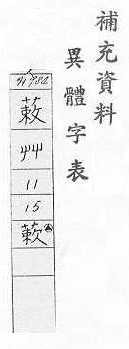 補充資料
異體字表
蓛
艸
11
15
蔌